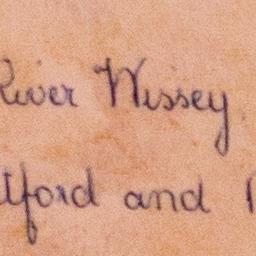 River Wissey
tford and